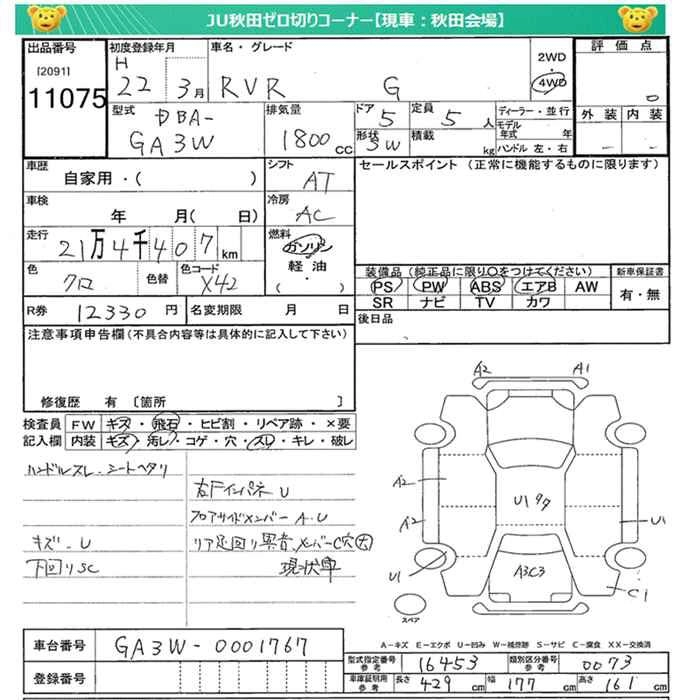 JU秋田ゼロ切りコーナー【現車：秋田会場】
出品番号
[2091]
11075
初度登録年月
H
22 3月
車名・グレード
RVR G
2WD
・
4WD
評価点
0
外装 内装
－ －
型式
DBA-
GA3W
排気量
1800cc
ドア
5
定員
5人
形状
5W
積載
kg
ディーラー・並行
モデル年式 年
ハンドル 左・右
車歴
自家用・（ ）
シフト
AT
車検
年 月（ 日）
冷房
AC
走行
21万4千407km
燃料
ガソリン
・
軽油
（ ）
色
クロ
色替
色コード
X42
R券 12330円
名変期限 月 日
セールスポイント（正常に機能するものに限ります）
装備品（純正品に限り○をつけてください）
新車保証書
PS PW ABS エアB AW
SR ナビ TV カワ
有・無
後日品
注意事項申告欄（不具合内容等は具体的に記入して下さい）
修復歴 有〔箇所 〕
検査員記入欄
FW キズ・飛石・ヒビ割・リペア跡・×要
内装 キズ・汚レ・コゲ・穴・スレ・キレ・破レ
ハンドルスレ・シートヘタリ
右Fインパネ U
フロアサイドメンバー A・U
キズ・U
リア足回り異音、メンバーC穴大
下回りSC
現状車
A2 A1
A2
A2
U1
U1
A3C3
U1
C1
スペア
A－キズ E－エクボ U－凹み W－補修跡 S－サビ C－腐食 XX－交換済
車台番号 GA3W-0001767
登録番号
型式指定番号 参考 16453
類別区分番号 参考 0073
車庫証明用 参考
長さ 429cm 幅 177cm 高さ 161cm